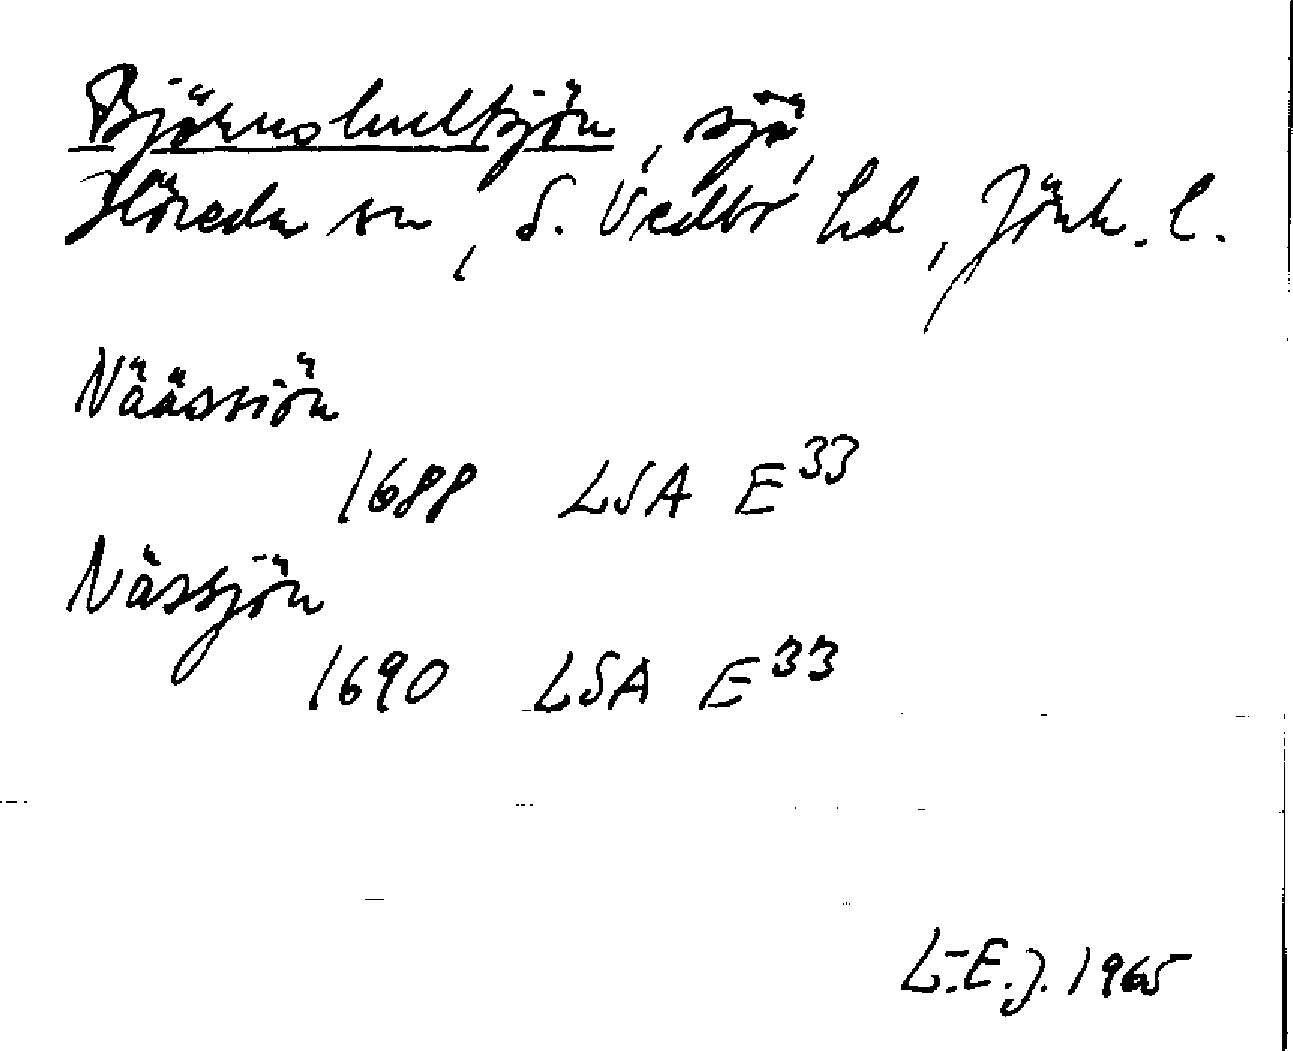 Björnshultsjön, sjö,
Höreda sn, S. Vedbo hd, Jönk. l.
Näässiön
1688 LSA E33
Nässjön
1690 LSA E33
L.-E.J. 1965